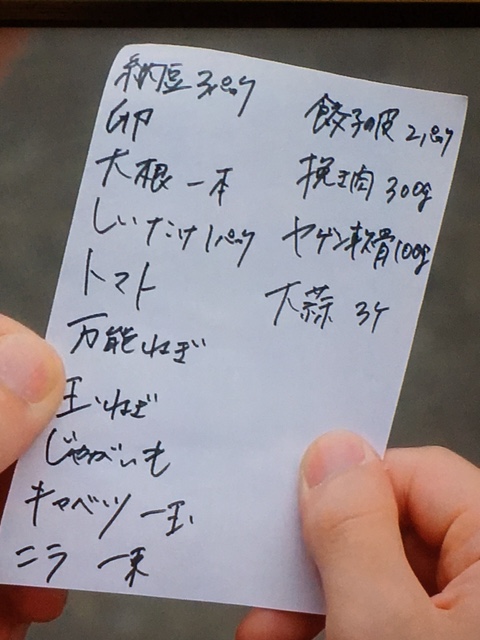 納豆 3パック
卵
大根 一本
しいたけ 1パック
トマト
万能ねぎ
玉ねぎ
じゃがいも
キャベツ 一玉
ニラ 一束
餃子の皮 2パック
挽き肉 300g
ヤゲン軟骨100g
大蒜 3ケ